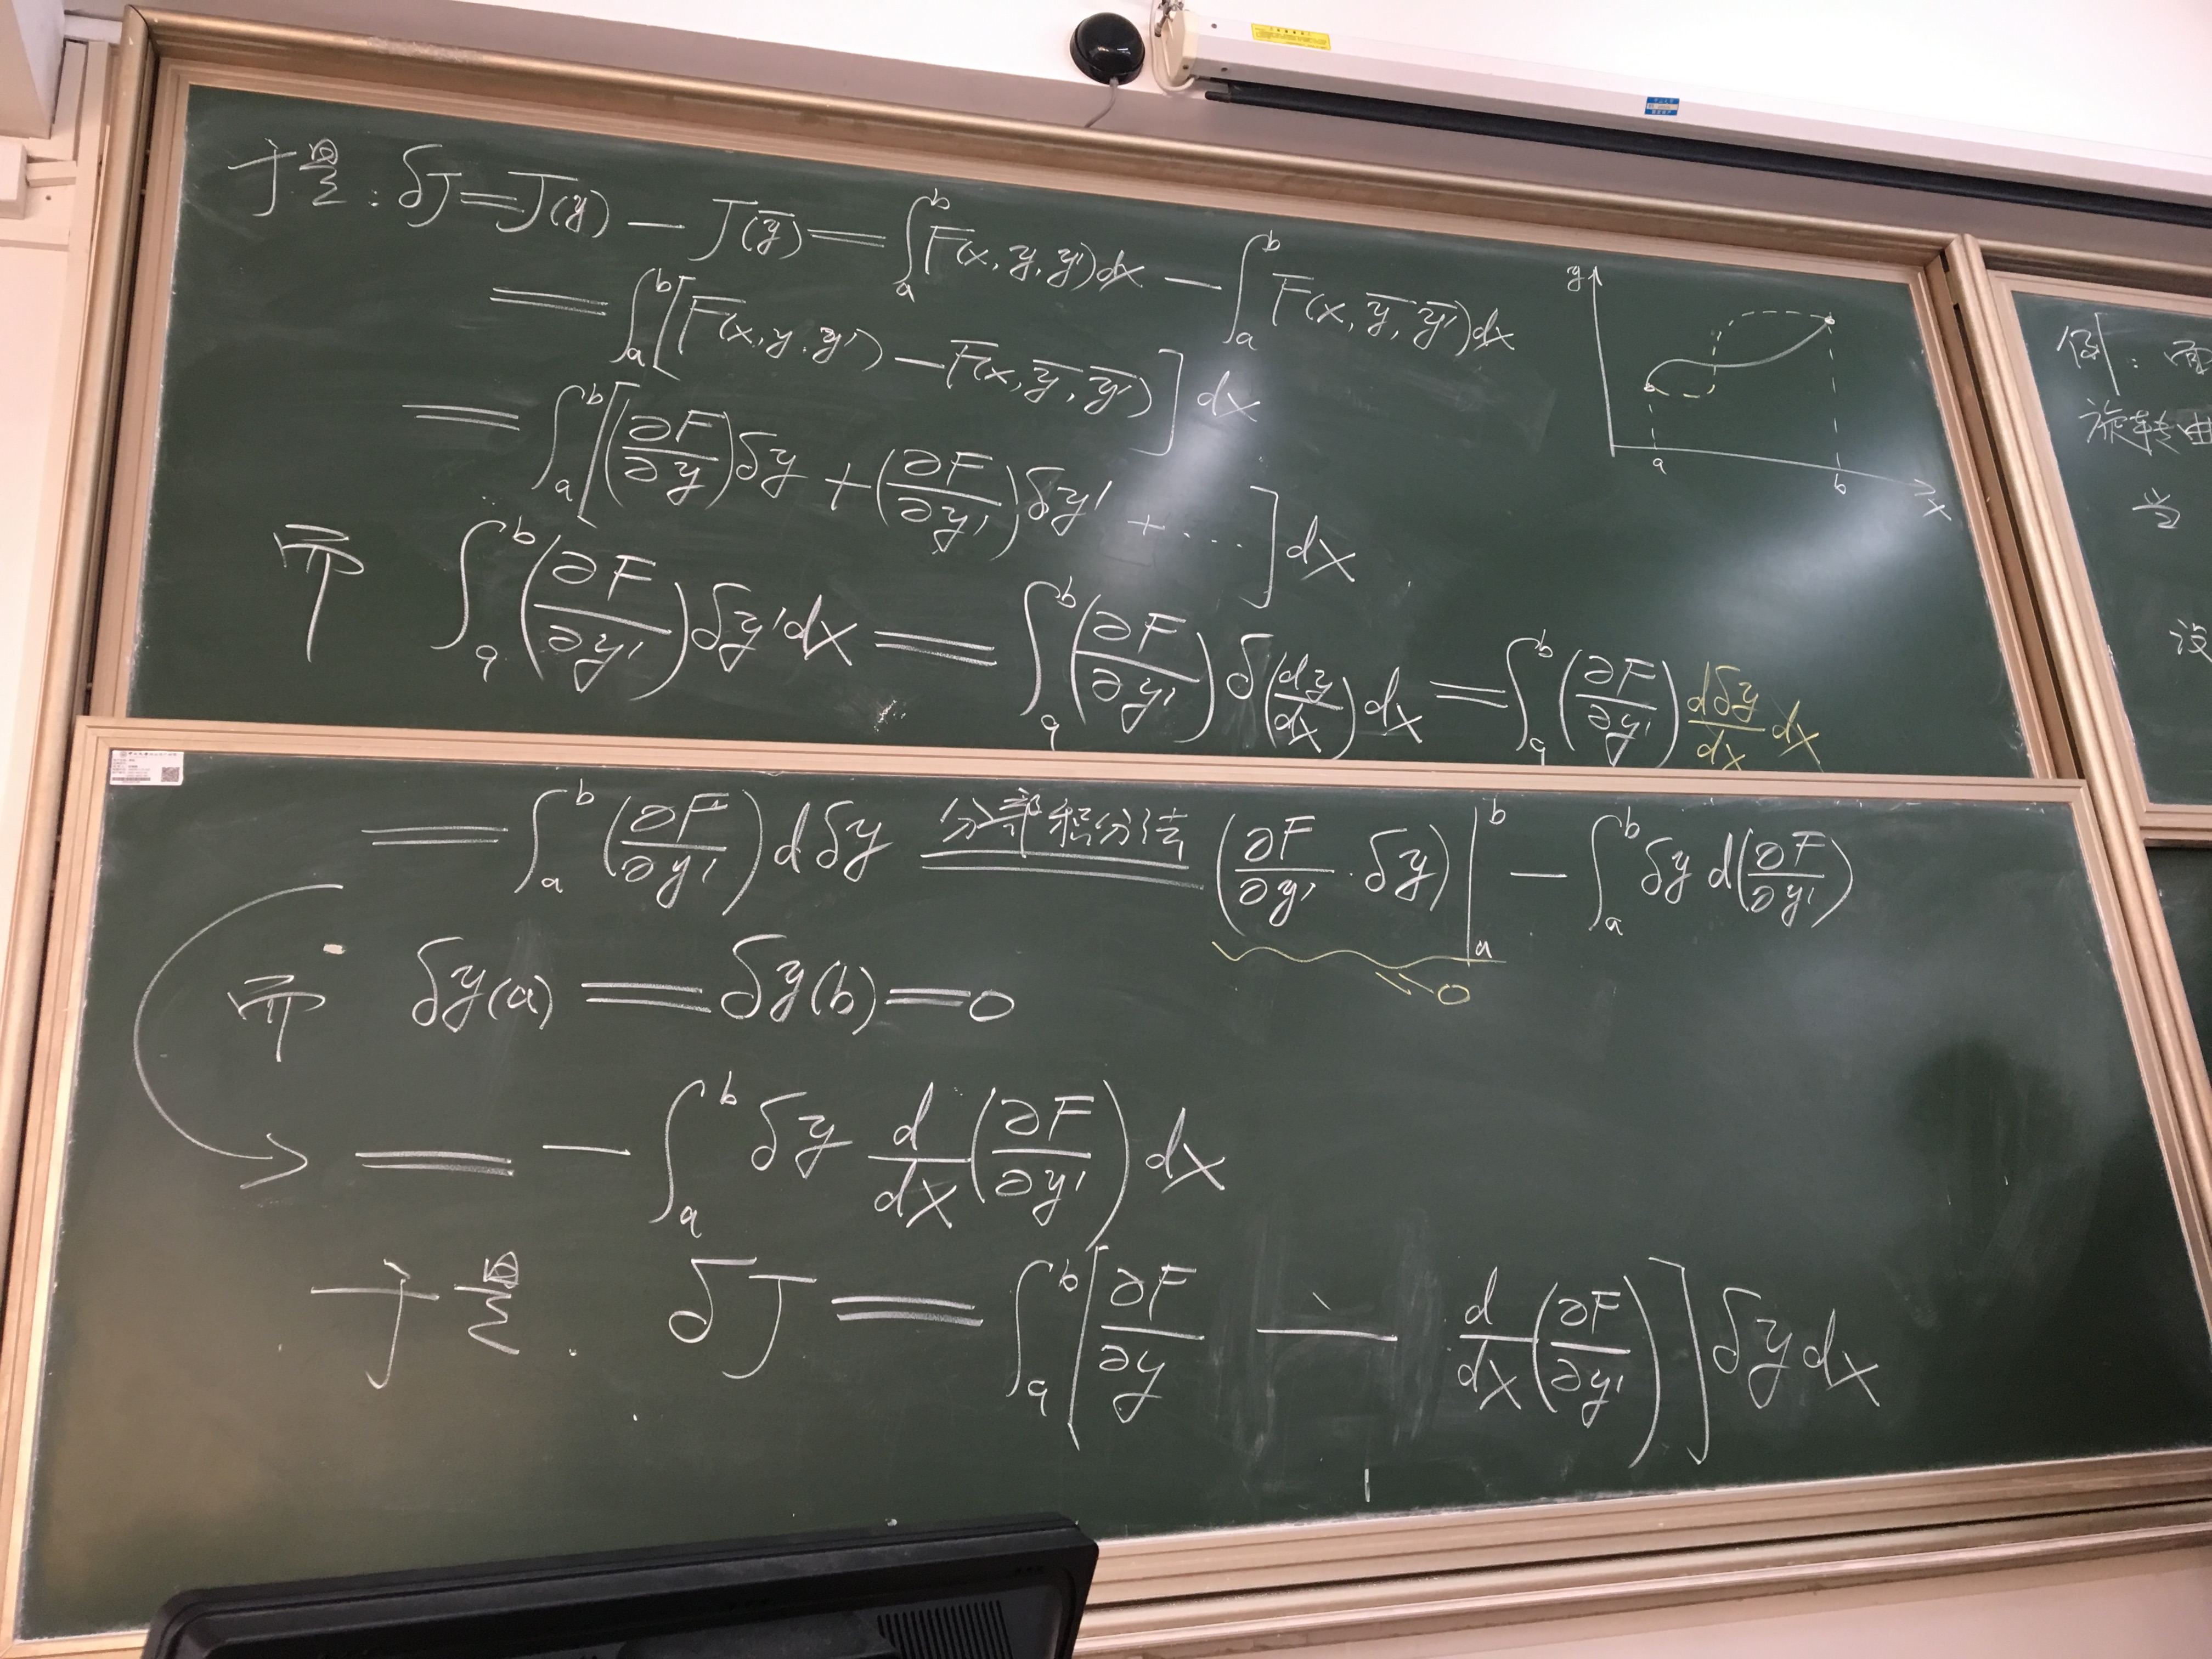 于是: δJ = J(y) − J(ȳ) = ∫ₐᵇ F(x, y, y')dx − ∫ₐᵇ F(x, ȳ, ȳ')dx
= ∫ₐᵇ [F(x, y, y') − F(x, ȳ, ȳ')] dx
= ∫ₐᵇ [(∂F/∂y) δy + (∂F/∂y') δy' + ...] dx
而 ∫ₐᵇ (∂F/∂y') δy' dx = ∫ₐᵇ (∂F/∂y') δ(dy/dx) dx = ∫ₐᵇ (∂F/∂y') dδy/dx dx
y
a
b
x
= ∫ₐᵇ (∂F/∂y') dδy 分部积分法 (∂F/∂y' · δy)|ₐᵇ − ∫ₐᵇ δy d(∂F/∂y')
= 0
而 δy(a) = δy(b) = 0
= − ∫ₐᵇ δy d/dx (∂F/∂y') dx
于是. δJ = ∫ₐᵇ [∂F/∂y − d/dx (∂F/∂y')] δy dx
例:
旋转曲
当
设